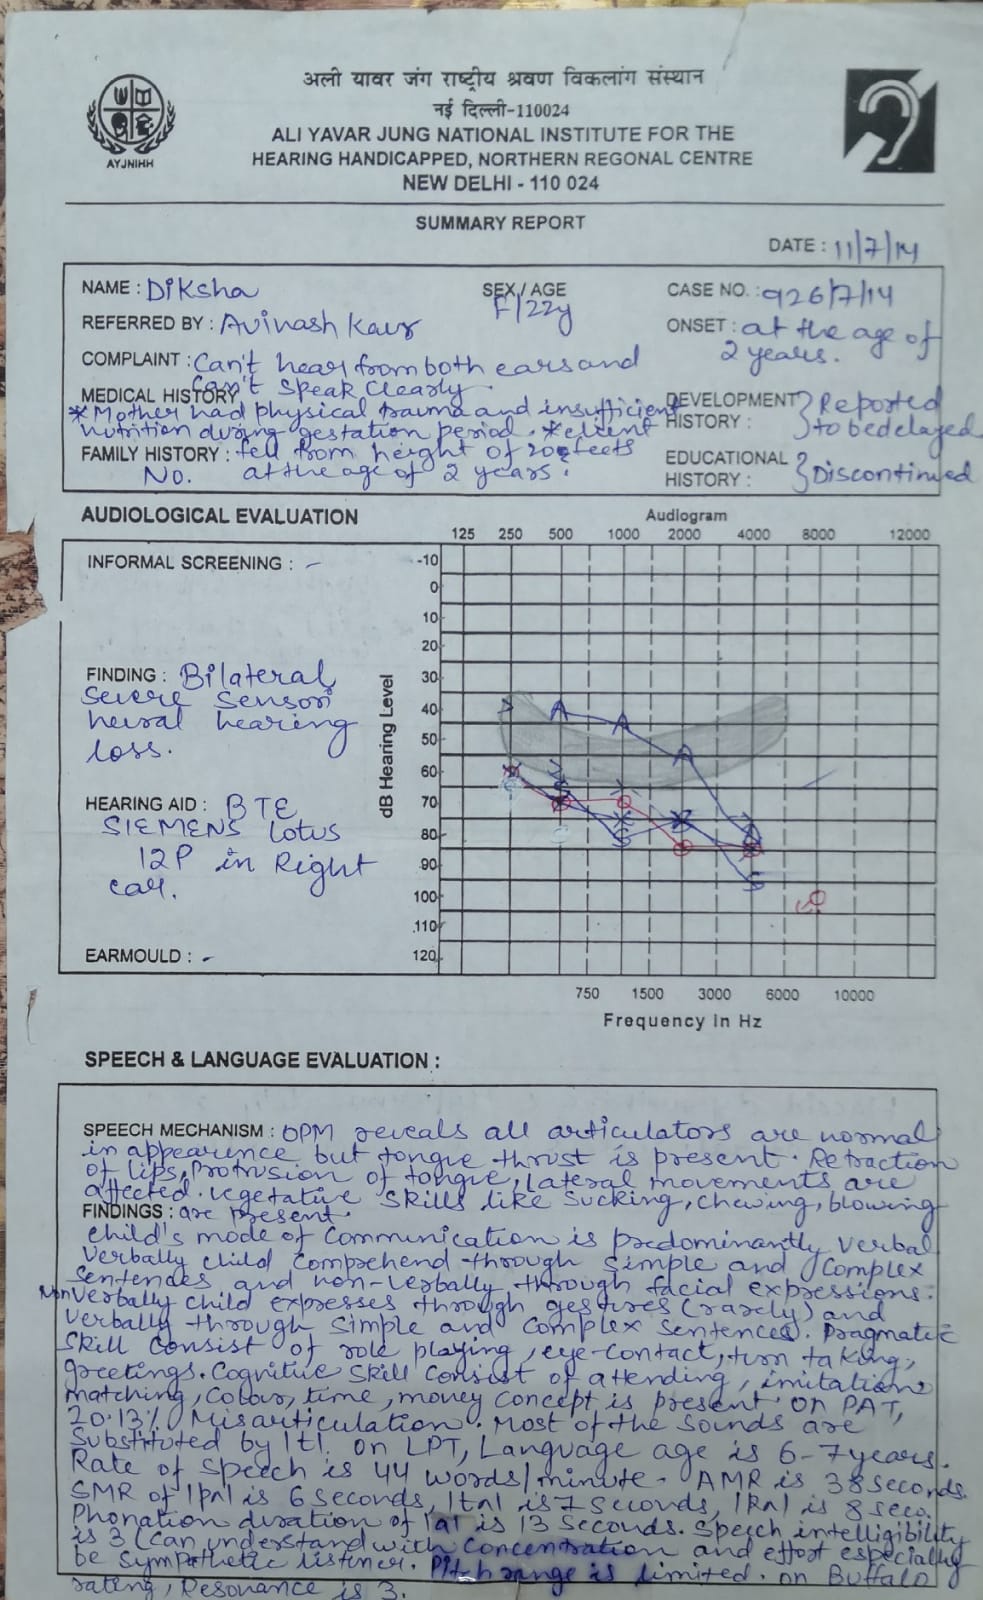 अली यावर जंग राष्ट्रीय श्रवण विकलांग संस्थान
नई दिल्ली-110024
ALI YAVAR JUNG NATIONAL INSTITUTE FOR THE
HEARING HANDICAPPED, NORTHERN REGIONAL CENTRE
NEW DELHI - 110 024
AYJNIHH
SUMMARY REPORT
DATE : 11/7/14
NAME : Diksha
SEX / AGE F/22y
CASE NO. : 926/7/14
REFERRED BY : Avinash Kaur
ONSET : at the age of
2 years.
COMPLAINT : Can't hear from both ears and
can't speak clearly.
MEDICAL HISTORY
*Mother had physical trauma and insufficient
nutrition during gestation period. *client
fell from height of 20 feets
at the age of 2 years.
DEVELOPMENT HISTORY : Reported
to be delayed
FAMILY HISTORY :
No.
EDUCATIONAL HISTORY : Discontinued
AUDIOLOGICAL EVALUATION
Audiogram
125 250 500 1000 2000 4000 8000 12000
INFORMAL SCREENING : -
-10
0
10
20
30
40
50
60
70
80
90
100
110
120
dB Hearing Level
FINDING : Bilateral
severe sensori
neural hearing
loss.
HEARING AID : BTE
SIEMENS Lotus
12P in Right
ear.
EARMOULD : -
750 1500 3000 6000 10000
Frequency In Hz
SPEECH & LANGUAGE EVALUATION :
SPEECH MECHANISM : OPM reveals all articulators are normal
in appearence but tongue thrust is present. Retraction
of lips, Protrusion of tongue, lateral movements are
affected. vegetative skills like sucking, chewing, blowing
FINDINGS : are present.
Child's mode of communication is predominantly verbal
verbally child comprehend through simple and complex
sentences and non-verbally through facial expressions.
Non Verbally child expresses through gestures (rarely) and
verbally through simple and complex sentences. Pragmatic
skill consist of role playing, eye-contact, turn taking,
greetings. Cognitive skill consist of attending, imitation
matching, colour, time, money concept is present. On PAT,
20.13% Misarticulation. Most of the sounds are
substituted by |t|. on LPT, Language age is 6-7 years.
Rate of speech is 44 words/minute. AMR is 38 seconds.
SMR of |pa| is 6 seconds, |ta| is 7 seconds, |ka| is 8 secs.
Phonation duration of |a| is 13 seconds. Speech intelligibility
is 3 (Can understand with concentration and effort especially
be sympathetic listener. Pitch range is limited. on Buffalo
rating, Resonance is 3.